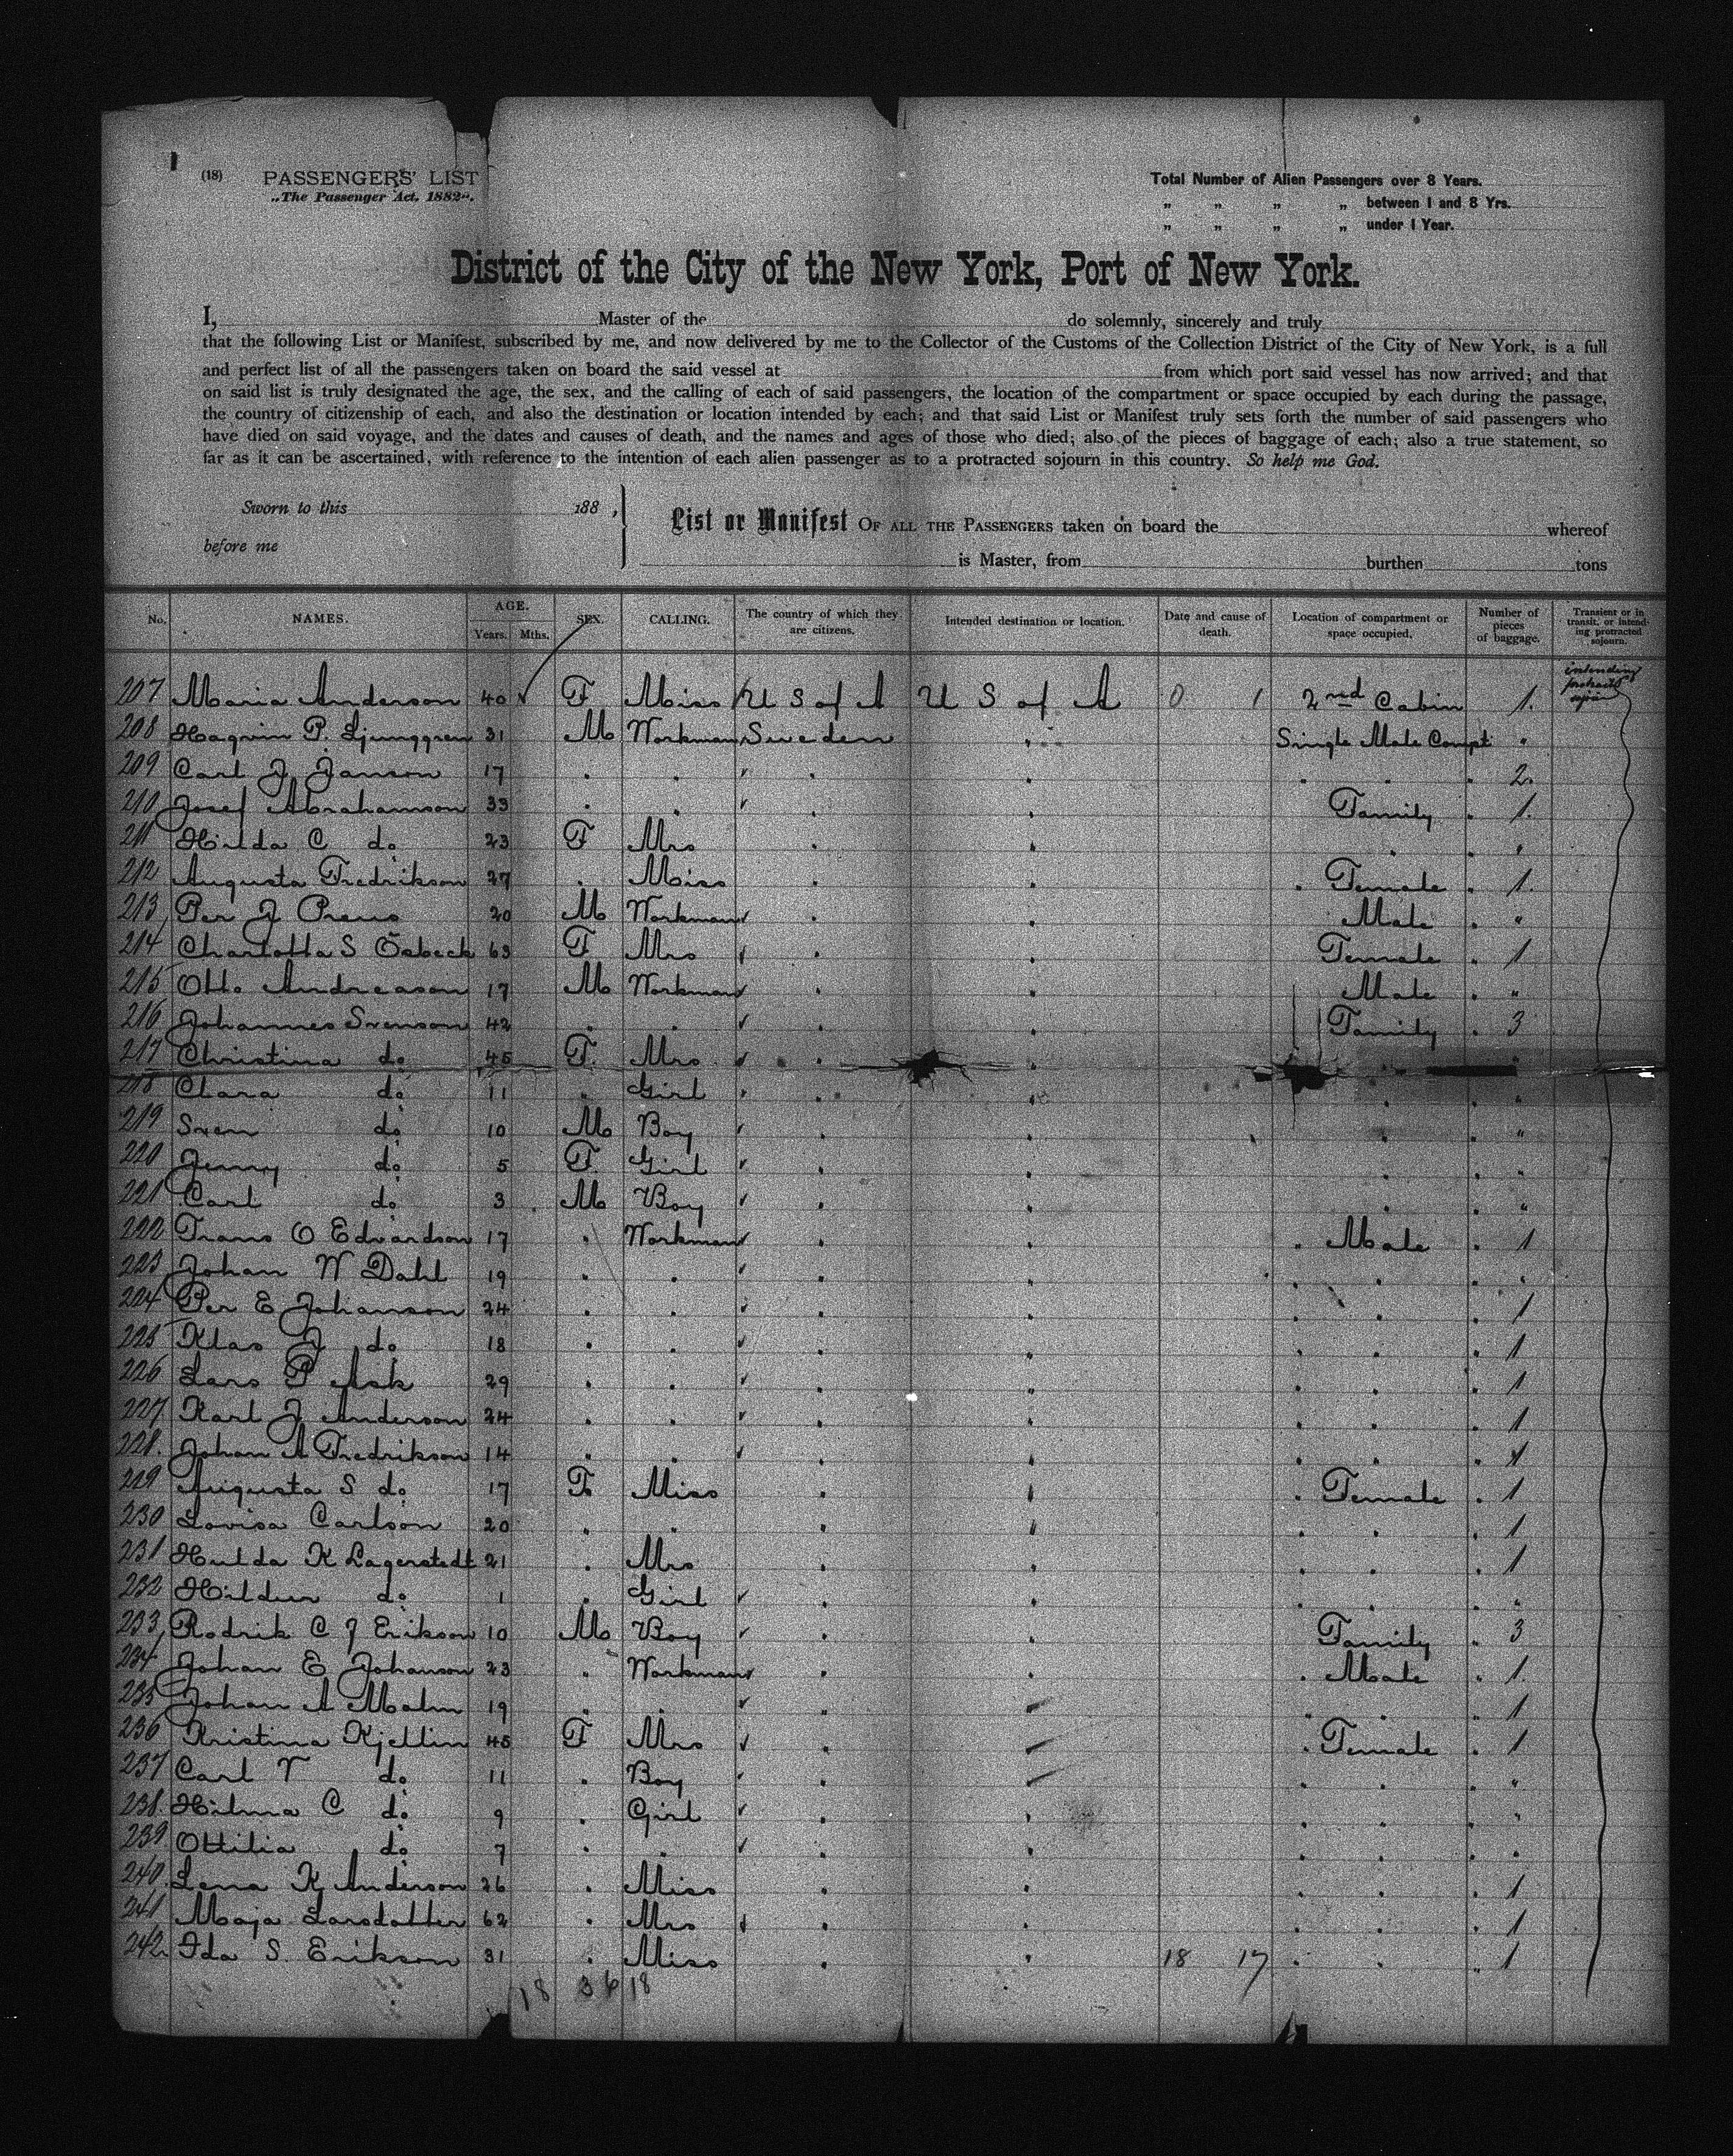 (18) PASSENGERS' LIST
„The Passenger Act, 1882".
Total Number of Alien Passengers over 8 Years.
„ „ „ „ between 1 and 8 Yrs.
„ „ „ „ under 1 Year.
District of the City of the New York, Port of New York.
I, Master of the do solemnly, sincerely and truly
that the following List or Manifest, subscribed by me, and now delivered by me to the Collector of the Customs of the Collection District of the City of New York, is a full
and perfect list of all the passengers taken on board the said vessel at from which port said vessel has now arrived; and that
on said list is truly designated the age, the sex, and the calling of each of said passengers, the location of the compartment or space occupied by each during the passage,
the country of citizenship of each, and also the destination or location intended by each; and that said List or Manifest truly sets forth the number of said passengers who
have died on said voyage, and the dates and causes of death, and the names and ages of those who died; also of the pieces of baggage of each; also a true statement, so
far as it can be ascertained, with reference to the intention of each alien passenger as to a protracted sojourn in this country. So help me God.
Sworn to this 188 ,
before me
List or Manifest OF ALL THE PASSENGERS taken on board the whereof
is Master, from burthen tons
No. NAMES. AGE. Years. Mths. SEX. CALLING. The country of which they are citizens. Intended destination or location. Date and cause of death. Location of compartment or space occupied. Number of pieces of baggage. Transient or in transit, or intending protracted sojourn.
207 Maria Anderson 40 F Miss U S of A U S of A 0 1 2nd Cabin 1. intending
208 Haqvin P. Ljunggren 31 M Workman Sweden " Single Male Compt "
209 Carl J Janson 17 " " " " " " " 2.
210 Josef Abrahamson 33 " " " " Family " 1.
211 Hilda C do 23 F Mrs " " " " "
212 Augusta Fredrikson 27 " Miss " " " Female " 1.
213 Per J Preus 20 M Workman " Male " "
214 Charlotta S Ösbeck 63 F Mrs " " Female " 1
215 Otto Andreason 17 M Workman " " Male " "
216 Johannes Svenson 42 " " " " Family " 3
217 Christina do 45 F. Mrs " " "
218 Clara do 11 " Girl " " " " "
219 Sven do 10 M Boy " " " " "
220 Jenny do 5 F. Girl " " " " "
221 Carl do 3 M Boy " " " " "
222 Frans O Edvardson 17 " Workman " " " Male " 1
223 Johan W Dahl 19 " " " " " " " "
224 Per E Johanson 24 " " " " " " " 1
225 Klas J do 18 " " " " " " " 1
226 Lars P Ask 29 " " " " " " " 1
227 Karl J Anderson 24 " " " " " " " 1
228. Johan A Fredrikson 14 " " " " " " " 1
229 Augusta S do 17 F. Miss " " " Female " 1
230 Lovisa Carlson 20 " " " " " " " 1
231 Hulda K Lagerstedt 21 " Mrs " " " " " 1
232 Hildur do 1 " Girl " " " " " "
233 Rodrik C J Erikson 10 M Boy " " Family " 3
234 Johan E Johanson 23 " Workman " " " Male " 1.
235 Johan A Malm 19 " " " " " " " 1
236 Kristina Kjellin 45 F Mrs " " " Female " 1
237 Carl V do 11 " Boy " " " " " "
238. Hilma C do 9 " Girl " " " " " "
239 Ottilia do 7 " " " " " " " "
240 Lena K Anderson 26 " Miss " " " " " 1
241 Maja Larsdotter 62 " Mrs " " " " " 1
242. Ida S. Erikson 31 " Miss " " 18 17 " " " 1
18 36 18